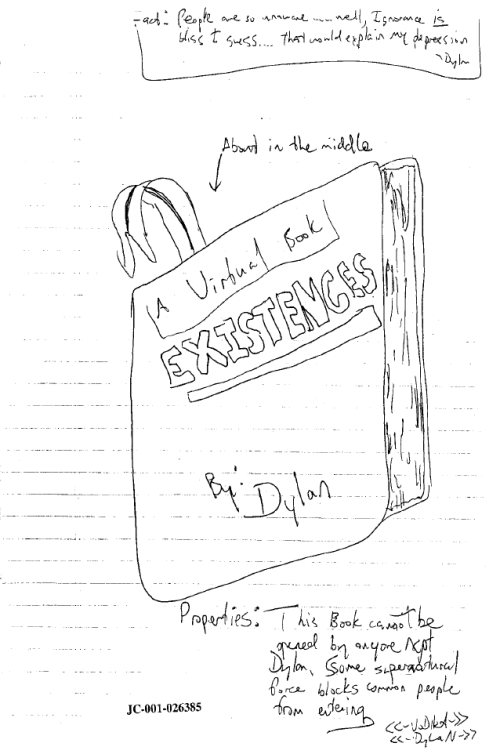 Fact: People are so unaware .... well, Ignorance is
bliss I guess.... that would explain my depression
~Dylan
About in the middle
A Virtual Book
EXISTENCES
By: Dylan
Properties: This Book cannot be
opened by anyone xept
Dylan, (some supernatural
force blocks common people
from entering
JC-001-026385
<<-VoDkA->>
<<-DyLaN->>